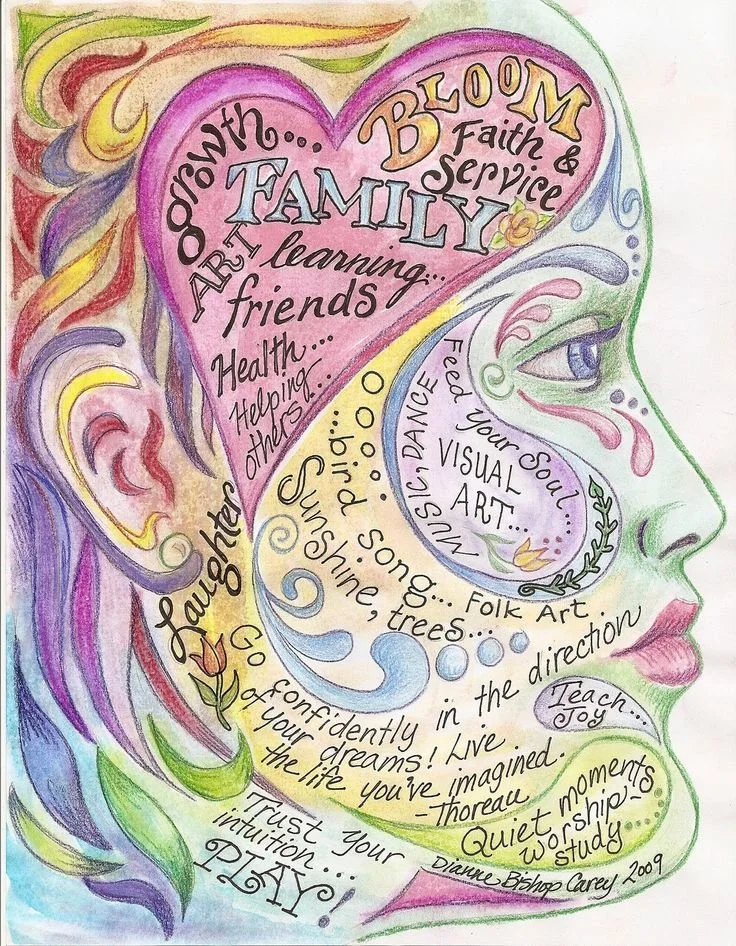 BLOOM
Faith &
Service
growth...
FAMILY
ART
learning...
friends
Health...
Helping
others...
Feed your Soul...
MUSIC, DANCE
VISUAL
ART...
...bird song...
Sunshine, trees...
Folk Art
Laughter
Go confidently in the direction
of your dreams! Live
the life you've imagined.
-Thoreau
Teach...
Joy
Quiet moments
worship-
study...
Trust your
intuition...
PLAY!
Dianne Bishop Carey 2009